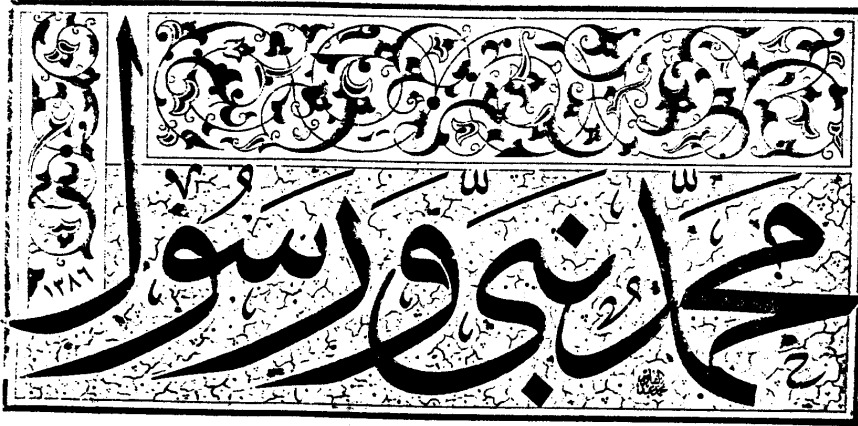 محمد نبي ورسول
١٣٨٦